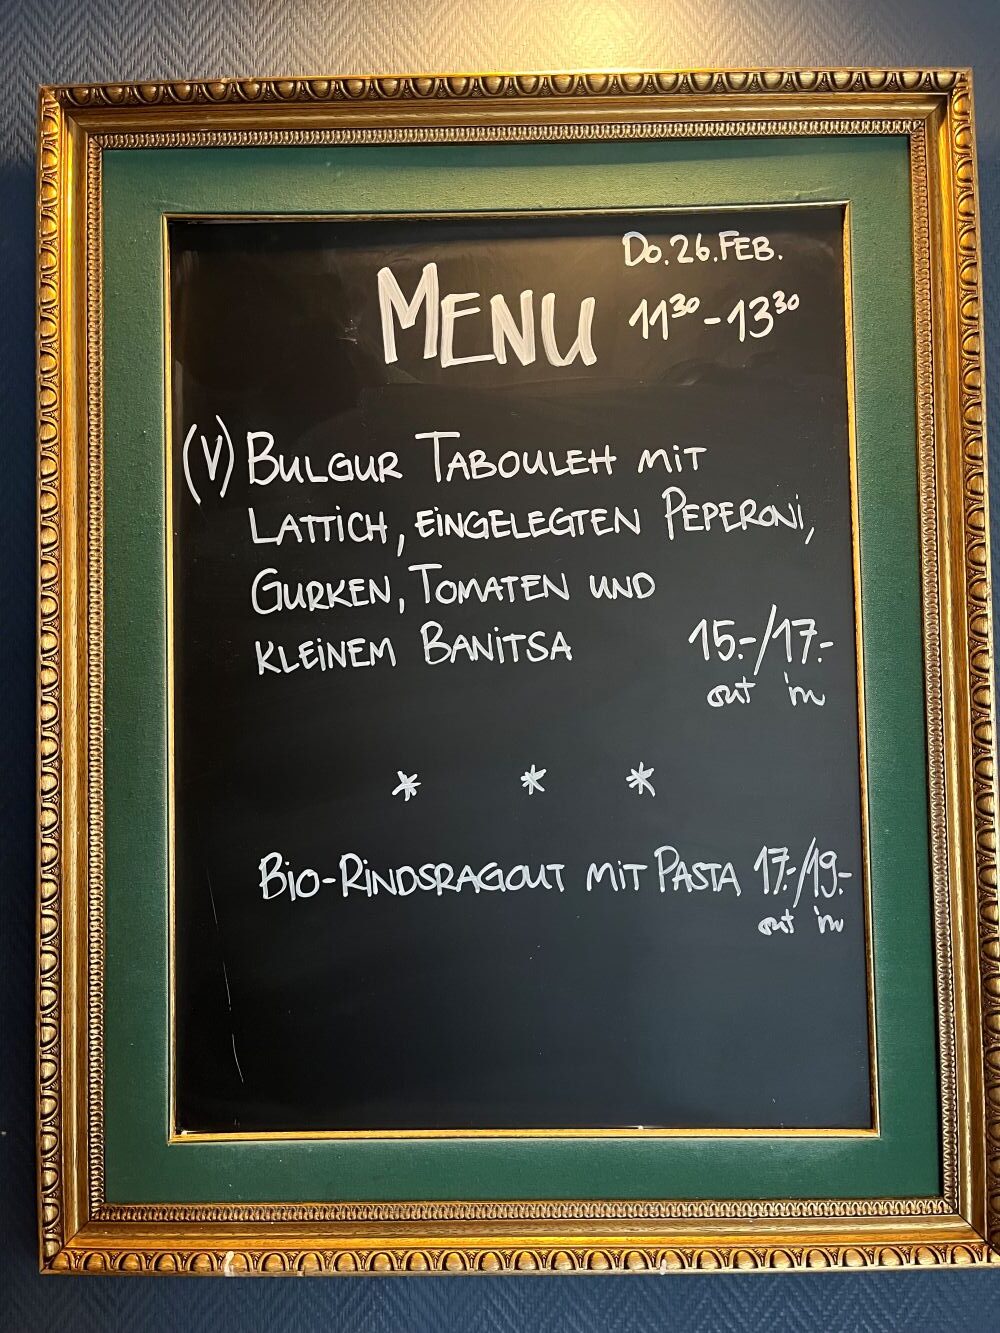 Do. 26. FEB.
MENU 11³⁰ - 13³⁰
(V) BULGUR TABOULEH MIT
LATTICH, EINGELEGTEN PEPERONI,
GURKEN, TOMATEN UND
KLEINEM BANITSA 15.-/17.-
out in
* * *
BIO-RINDSRAGOUT MIT PASTA 17.-/19.-
out in